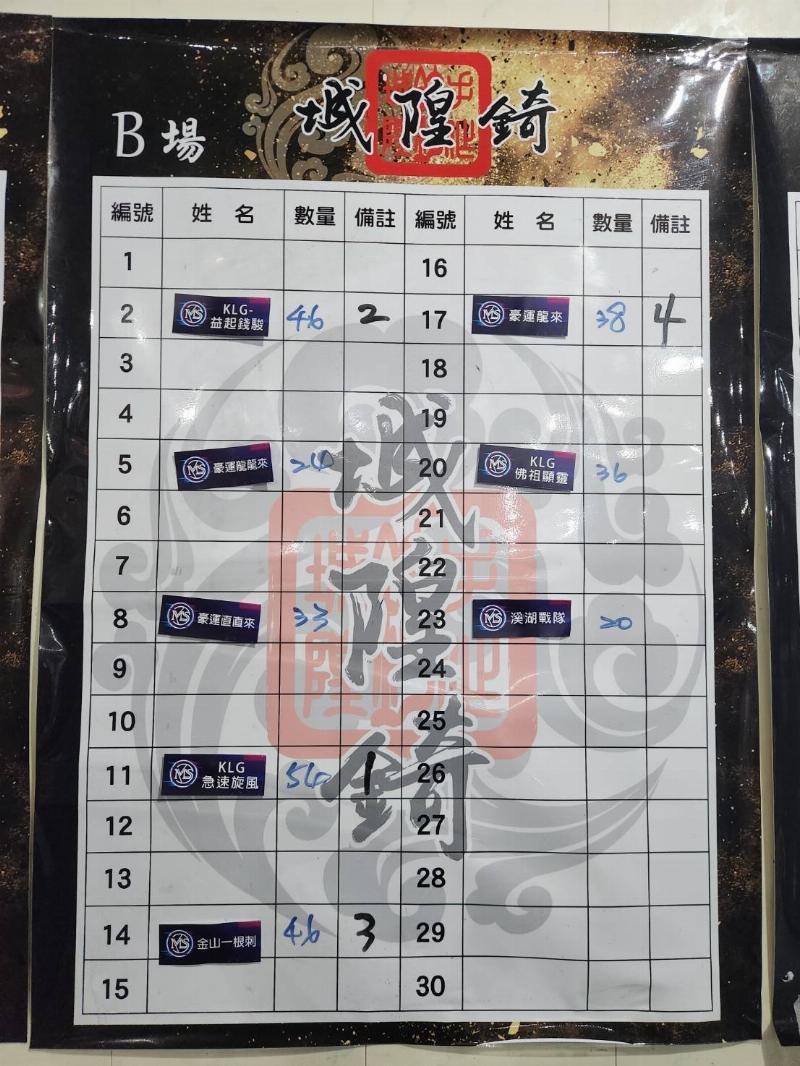 B場
城隍錡
編號 姓名 數量 備註 編號 姓名 數量 備註
1 16
2 MS KLG-益起錢駿 46 2 17 MS 豪運龍來 38 4
3 18
4 19
5 MS 豪運龍龍來 24 20 MS KLG 佛祖顯靈 36
6 21
7 22
8 MS 豪運直直來 33 23 MS 溪湖戰隊 20
9 24
10 25
11 MS KLG 急速旋風 54 1 26
12 27
13 28
14 MS 金山一根刺 46 3 29
15 30
城隍錡